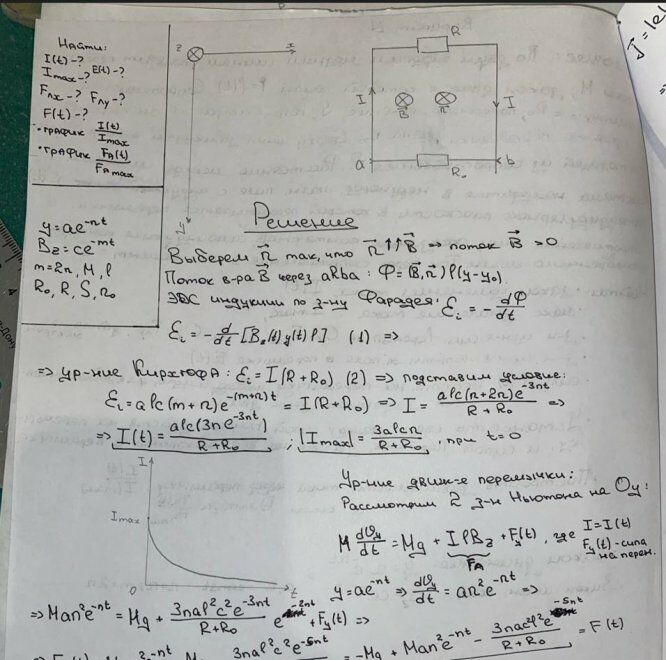 Найти:
I(t)-?
Imax-? E(t)-?
Fлx-? Fлy-?
F(t)-?
• график I(t)/Imax
• график FA(t)/FAmax
y=ae^-nt
Bz=ce^-mt
m=2n, M, l
R₀, R, S, r₀
z x
y
R
I B n I
a R₀ b
Решение
Выберем n⃗ так, что n⃗↑↑B⃗ => поток B⃗ >0
Поток в-ра B⃗ через aRba: Φ=(B⃗,n⃗)l(y-y₀).
ЭДС индукции по з-ну Фарадея: Ɛi = -dΦ/dt
Ɛi = -d/dt [Bz(t)y(t)l] (1) =>
=> ур-ние Кирхгофа: Ɛi = I(R+R₀) (2) => подставим условие:
Ɛi = alc(m+n)e^-(m+n)t = I(R+R₀) => I = alc(n+2n)e^-3nt/(R+R₀) =>
=> I(t) = alc(3ne^-3nt)/(R+R₀) ; |Imax| = 3alcn/(R+R₀), при t=0
I
Imax
0 t
Ур-ние движ-е перемычки:
Рассмотрим 2 з-н Ньютона на Oy:
M dυy/dt = Mg + IlBz + Fy(t), где I=I(t)
FA
Fy(t)-сила на перем.
y=ae^-nt => dυy/dt = an²e^-nt =>
=> Man²e^-nt = Mg + 3nal²c²e^-3nt/(R+R₀) e^-2nt + Fy(t) =>
= -Mg + Man²e^-nt - 3nac²l²e^-5nt/(R+R₀) = F(t)